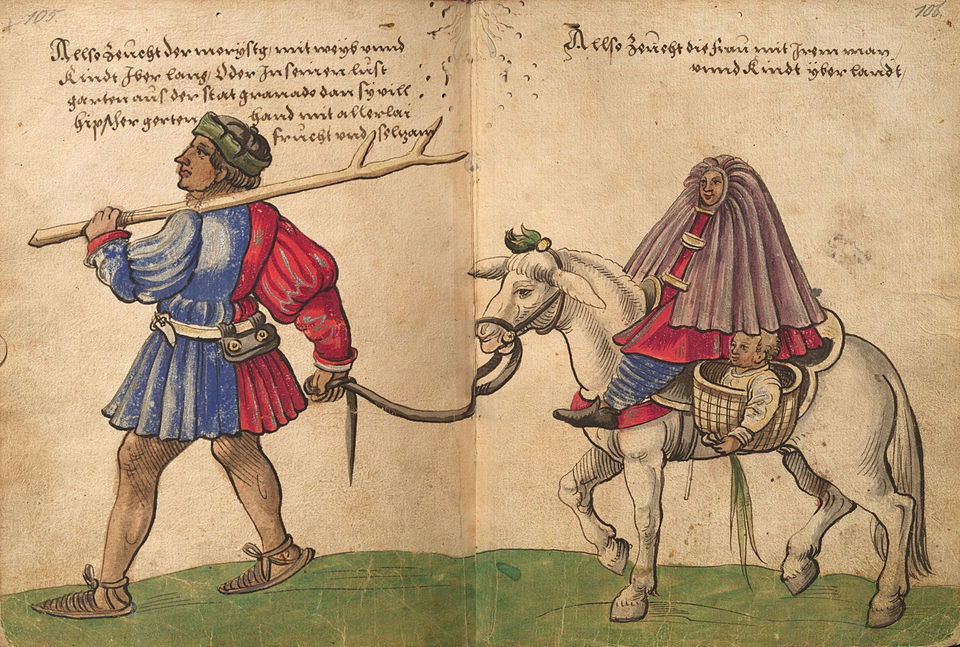 105.
Allso Zeücht der morystg / mit weyb vnnd
Kindt Jber lang / Oder Jn seinen lust
garten aus der stat granado dan sy vill
hipscher gerten hand mit allerlai
frucht vnd selzam
106.
Allso Zeücht die frau mit Jrem man /
vnnd Kindt yber landt /